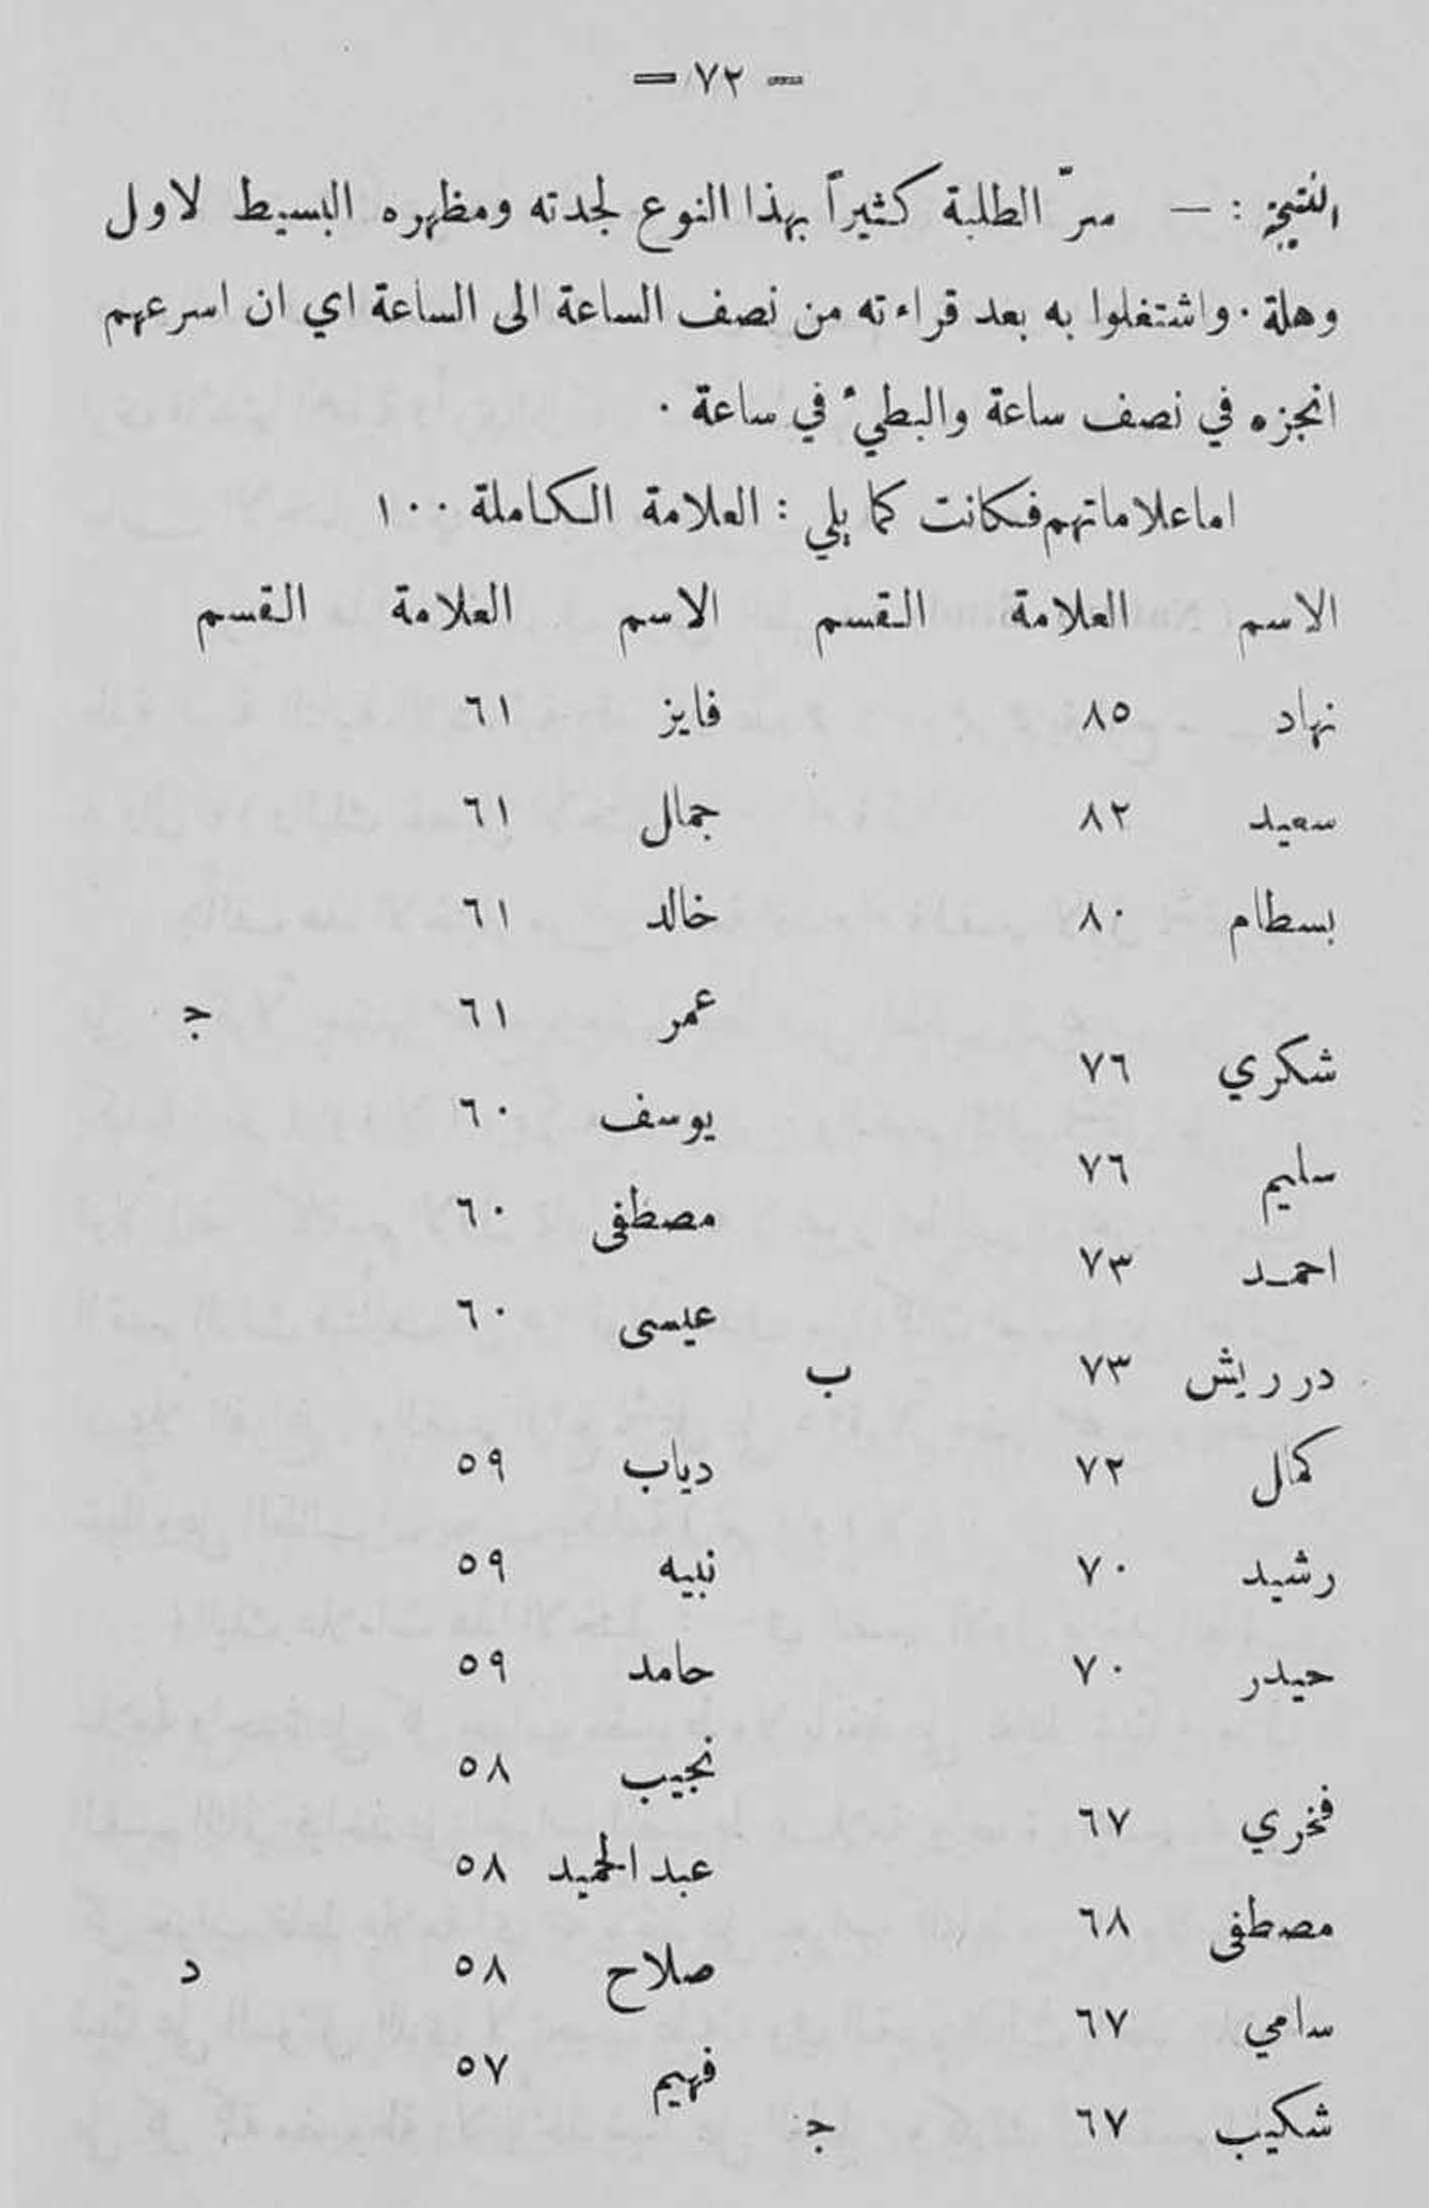 — ٧٢ —
النتيجة : — سرّ الطلبة كثيراً بهذا النوع لجدته ومظهره البسيط لاول
وهلة . واشتغلوا به بعد قراءته من نصف الساعة الى الساعة اي ان اسرعهم
انجزه في نصف ساعة والبطيء في ساعة .
اما علاماتهم فكانت كما يلي : العلامة الكاملة ١٠٠
الاسم العلامة القسم الاسم العلامة القسم
نهاد ٨٥ فايز ٦١
سعيد ٨٢ جمال ٦١
بسطام ٨٠ خالد ٦١
عمر ٦١ ج
شكري ٧٦
يوسف ٦٠
سليم ٧٦
مصطفى ٦٠
احمد ٧٣
عيسى ٦٠
درريش ٧٣ ب
كمال ٧٢ دياب ٥٩
رشيد ٧٠ نبيه ٥٩
حيدر ٧٠ حامد ٥٩
نجيب ٥٨
فخري ٦٧
عبد الحميد ٥٨
مصطفى ٦٨
صلاح ٥٨ د
سامي ٦٧
فهيم ٥٧
شكيب ٦٧ ج